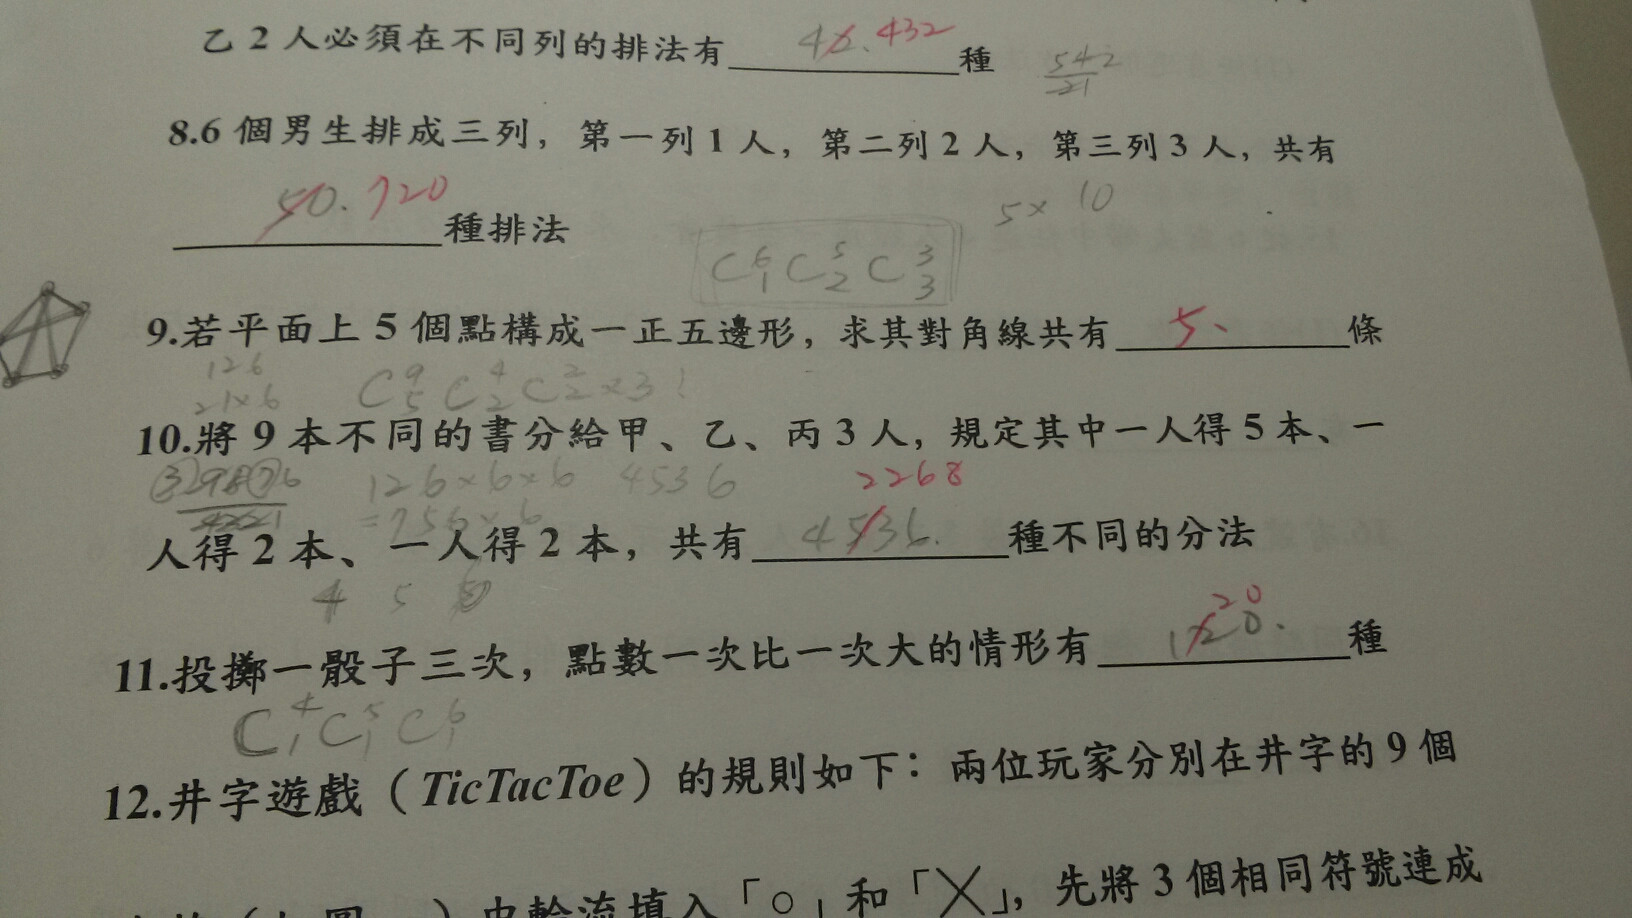 乙2人必須在不同列的排法有 432 種
542
21
8.6個男生排成三列，第一列1人，第二列2人，第三列3人，共有
50. 720 種排法
5× 10
C 6 1 C 5 2 C 3 3
9.若平面上5個點構成一正五邊形，求其對角線共有 5、 條
126
21×6
C 9 5 C 4 2 C 2 2 ×3!
10.將9本不同的書分給甲、乙、丙3人，規定其中一人得5本、一
126×6×6 4536 2268
=756×6
人得2本、一人得2本，共有 4536. 種不同的分法
4 5 6
11.投擲一骰子三次，點數一次比一次大的情形有 120. 20 種
C 4 1 C 5 1 C 6 1
12.井字遊戲（TicTacToe）的規則如下：兩位玩家分別在井字的9個
中輪流填入「○」和「╳」，先將3個相同符號連成